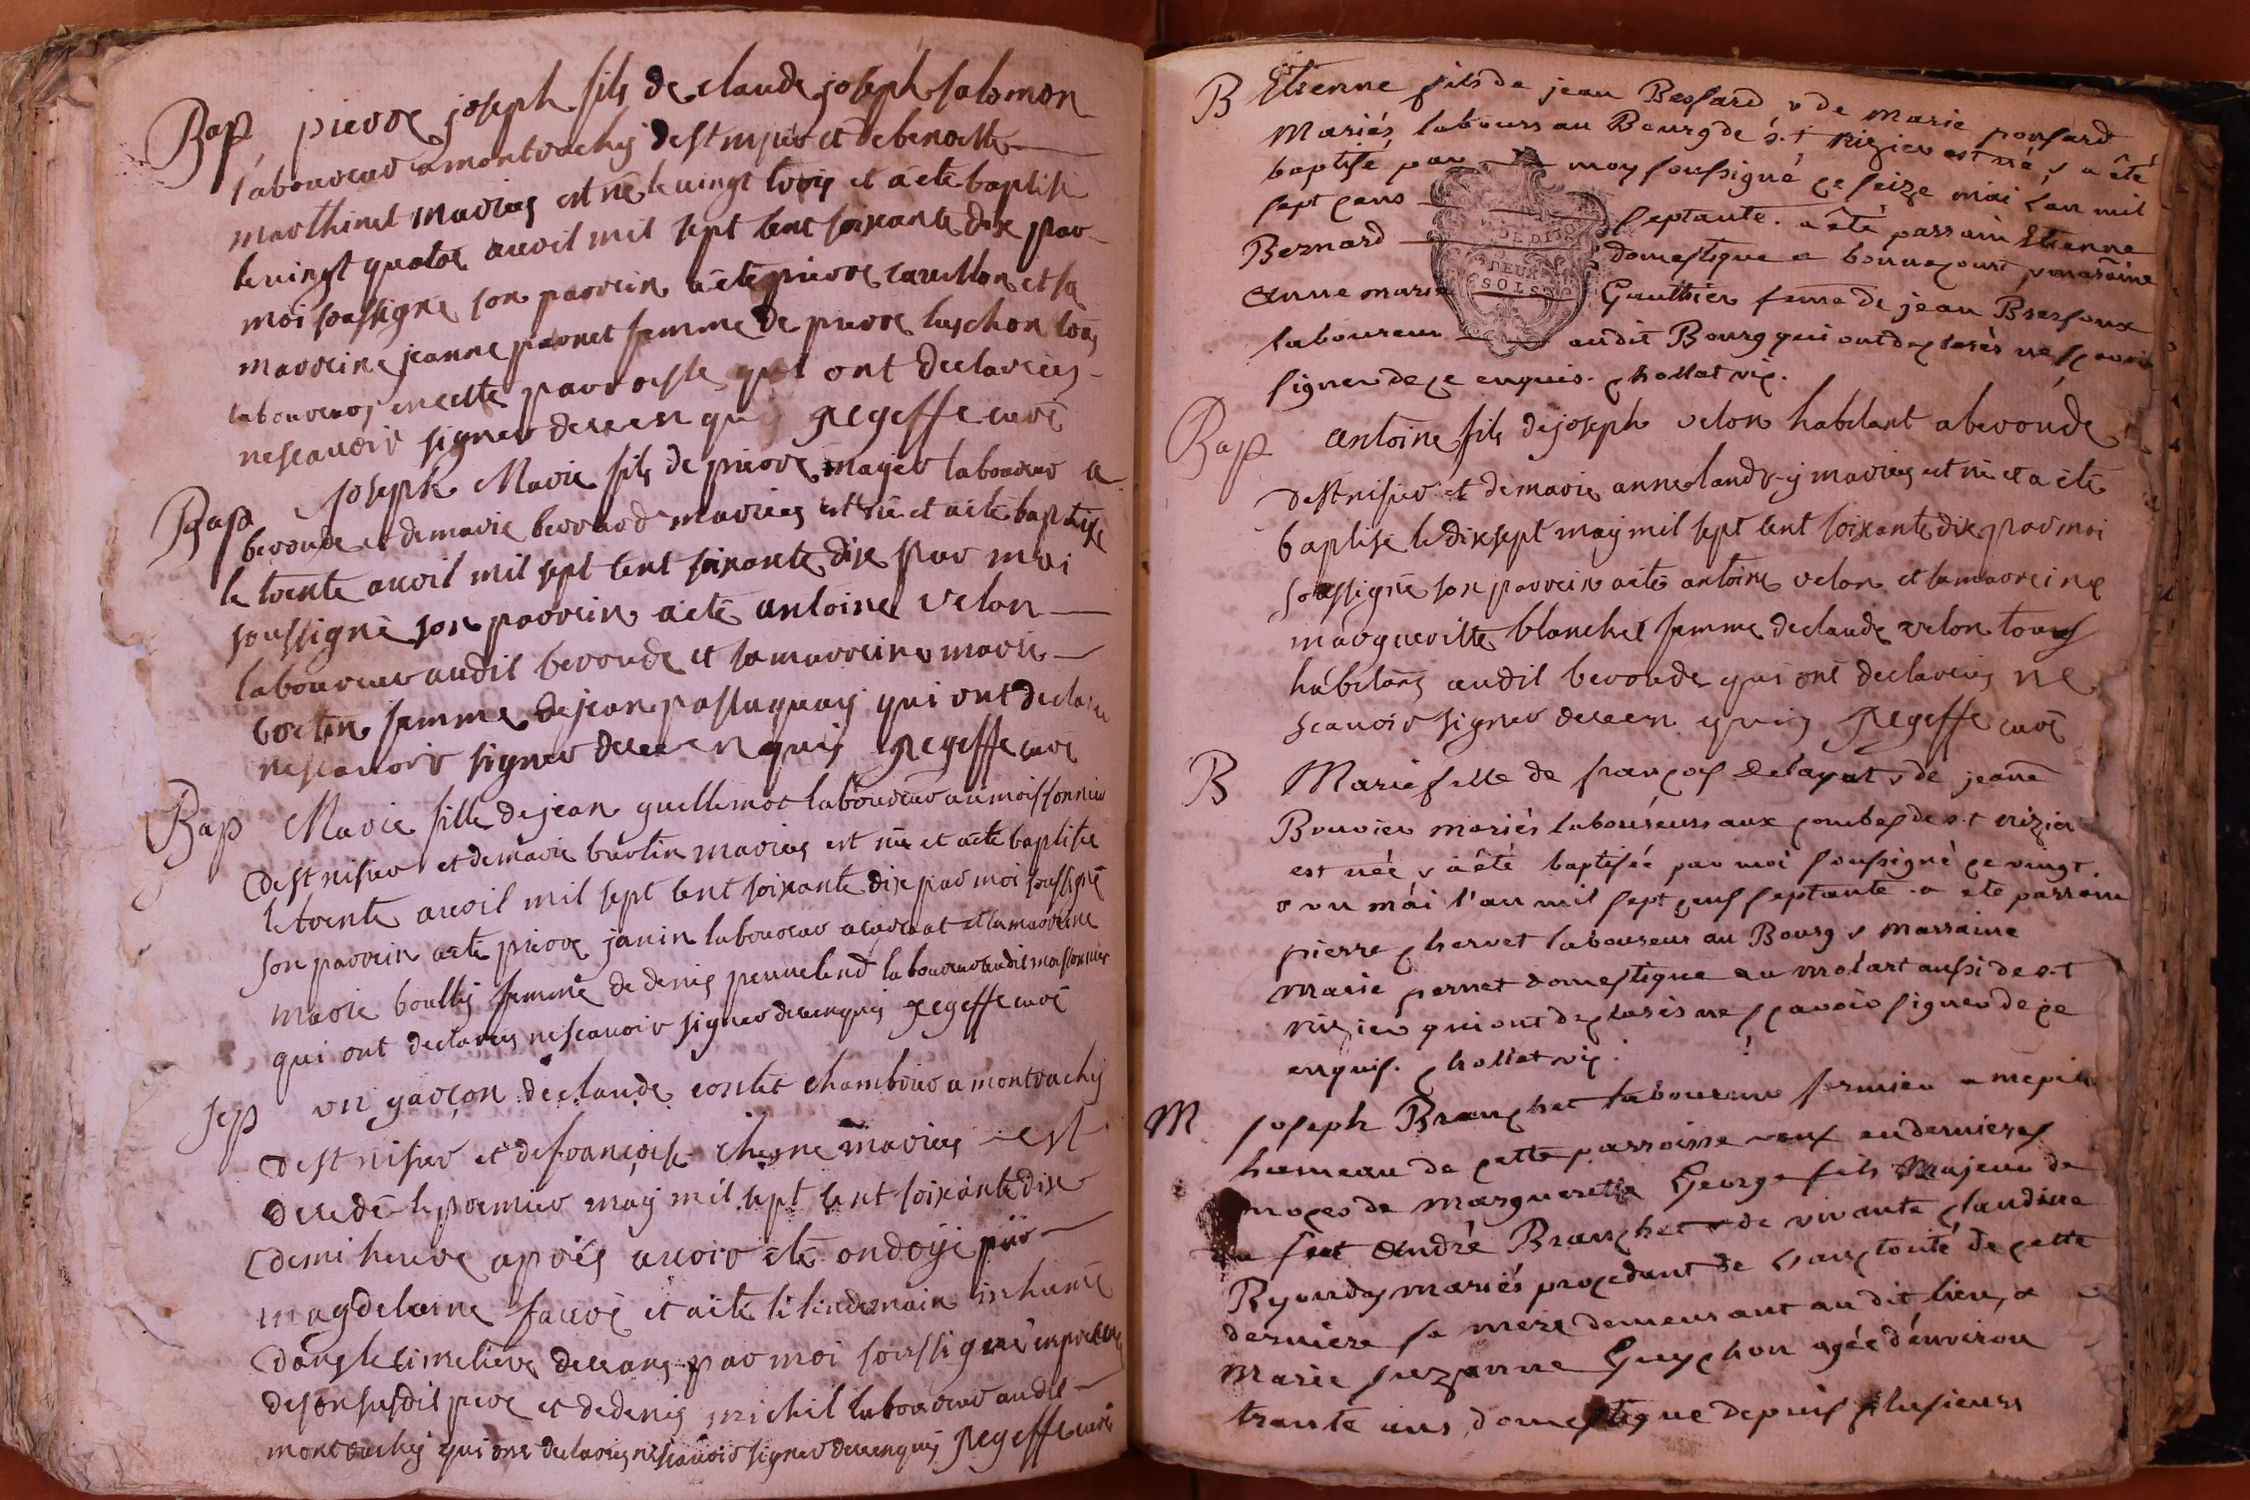 Bap pierre joseph fils de claude joseph salomon
laboureur a montrachy de st nisier et de benoitte
marthinet mariés est né le vingt trois et a eté baptisé
le vingt quatre avril mil sept cent soixante dix par
moi soussigné son parrein a eté pierre cavillon et sa
marreine jeanne pernet femme de pierre luschon tous
laboureurs en cette parroisse qui ont declareés
nescavoir signer de ce en quis gegeffe curé
Bap joseph Marie fils de pierre mayer laboureur a
beronde et de marie berrard mariés est né et a eté baptisé
le trente avril mil sept cent soixante dix par moi
soussigné son parrein a eté antoine velon
laboureur audit beronde et sa marreine marie
cortin femme de jean pastaquay qui ont declaré
nescavoir signer de ce en quis gegeffe curé
Bap Marie fille de jean guillemot laboureur au moissonnier
de st nisier et de marie burtin mariés est née et a eté baptisée
le trente avril mil sept cent soixante dix par moi soussigné
son parrein a eté pierre janin laboureur a et la marreine
marie boullis femme de denis laboureur audit moissonnier
qui ont declareés nescavoir signer de ce enquis gegeffe curé
Sep un garçon de claude contet chambrier a montrachy
de st nisier et de françoise chesne mariés est
decedé le premier may mil sept cent soixante dix
demi heure aprés avoir eté ondoyé par
magdelaine favre et a eté le lendemain inhumé
dans le cimetiere de ceans par moi soussigné en presence
de son susdit pere et de denis michel laboureur audit
montrachy qui ont declareés nescavoir signer de ce enquis gegeffe curé
B Etienne fils de jean Bessard & de marie ponsard
Mariés labours au Bourg de s.t Nizier est né, & a été
baptisé par moy soussigné ce seize mai l'an mil
sept cens septante. a été parrain Etienne
Bernard domestique a bonnecourt, & marraine
Anne marie Gauthier femme de jean Bressoux
laboureur audit Bourg qui ont declarés ne scavoir
signer de ce enquis. chollat vic.
DEUX
SOLS
Bap antoine fils de joseph velon habitant a beronde
de st nisier et de marie anne landry mariés est né et a eté
baptisé le dix sept may mil sept cent soixante dix par moi
soussigné son parrein a eté antoine velon et sa marreine
margueritte blanchet femme de claude velon tous
habitans audit beronde qui ont declareés ne
scavoir signer de ce en quis gegeffe curé
B Marie fille de françois Delayat & de jeane
Bouvier mariés laboureurs aux combes de s.t nizier
est née & a été baptisée par moi soussigné ce vingt
& un mai l'an mil sept cens septante. a eté parrain
pierre chervet laboureur au Bourg & marraine
Marie pernet domestique au molart aussi de s.t
nizier qui ont declarés ne scavoir signer de ce
enquis. chollat vic.
M Joseph Branchet laboureur fermier a
hameau de cette parroisse veuf en dernieres
noces de marguerette George fils Majeur de
feu André Branchet & de vivante claudine
Ryondas mariés procedant de l'authorité de cette
derniere sa mere demeurant au dit lieu, &
Marie suzanne Guychon agée d'environ
trante ans domestique depuis plusieurs